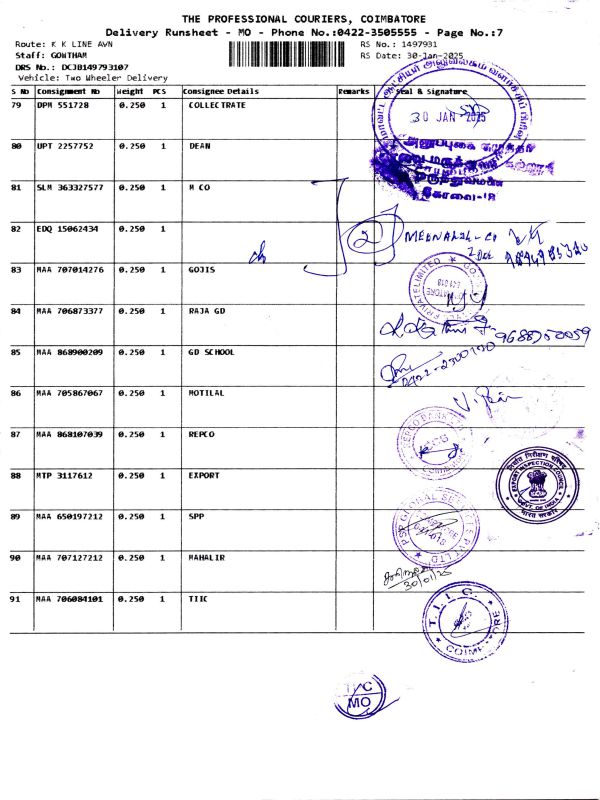 THE PROFESSIONAL COURIERS, COIMBATORE
Delivery Runsheet - MO - Phone No.:0422-3505555 - Page No.:7
Route: K K LINE AVN RS No.: 1497931
Staff: GOWTHAM RS Date: 30-Jan-2025
DRS No.: DCJB149793107
Vehicle: Two Wheeler Delivery
S No Consignment No Weight PCS Consignee Details Remarks Seal & Signature
79 DPM 551728 0.250 1 COLLECTRATE
30 JAN 2025
80 UPT 2257752 0.250 1 DEAN
81 SLM 363327577 0.250 1 M CO
82 EDQ 15062434 0.250 1
2
83 MAA 707014276 0.250 1 GOJIS
84 MAA 706873377 0.250 1 RAJA GD
9688750059
85 MAA 868900209 0.250 1 GD SCHOOL
0422-2300170
86 MAA 705867067 0.250 1 MOTILAL
87 MAA 868107039 0.250 1 REPCO
REPCO BANK
88 MTP 3117612 0.250 1 EXPORT
निर्यात निरीक्षण परिषद
EXPORT INSPECTION COUNCIL
GOVT. OF INDIA
भारत सरकार
89 MAA 650197212 0.250 1 SPP
PSP GLOBAL
PVT LTD
90 MAA 707127212 0.250 1 MAHALIR
30/01/25
91 MAA 706084101 0.250 1 TIIC
T. I. I. C.
MO